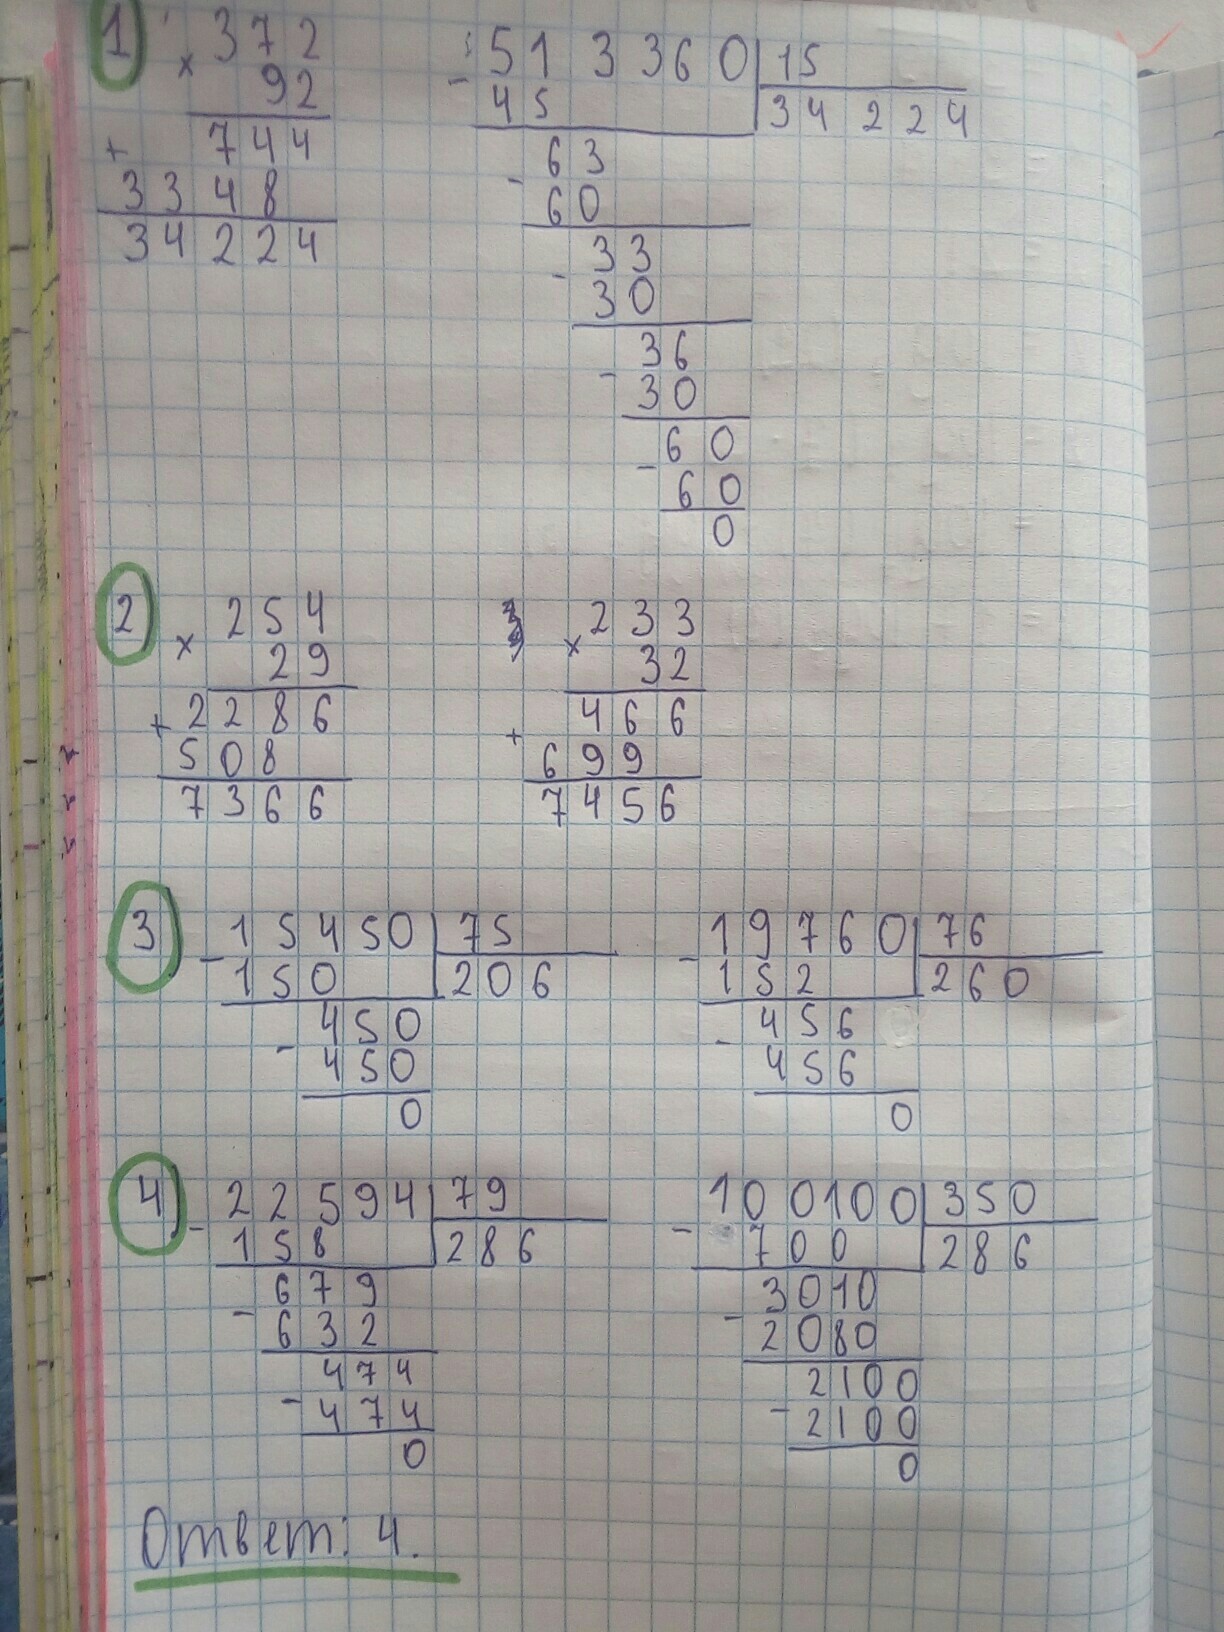 1) 372
× 92
744
+
3348
34224
- 513360 | 15
45 34224
63
- 60
33
- 30
36
- 30
60
- 60
0
2) 254
× 29
+ 2286
508
7366
233
× 32
466
+ 699
7456
3) - 15450 | 75
150 206
450
- 450
0
- 19760 | 76
152 260
456
- 456
0
4) - 22594 | 79
158 286
679
- 632
474
- 474
0
- 100100 | 350
700 286
3010
- 2080
2100
- 2100
0
Ответ: 4.